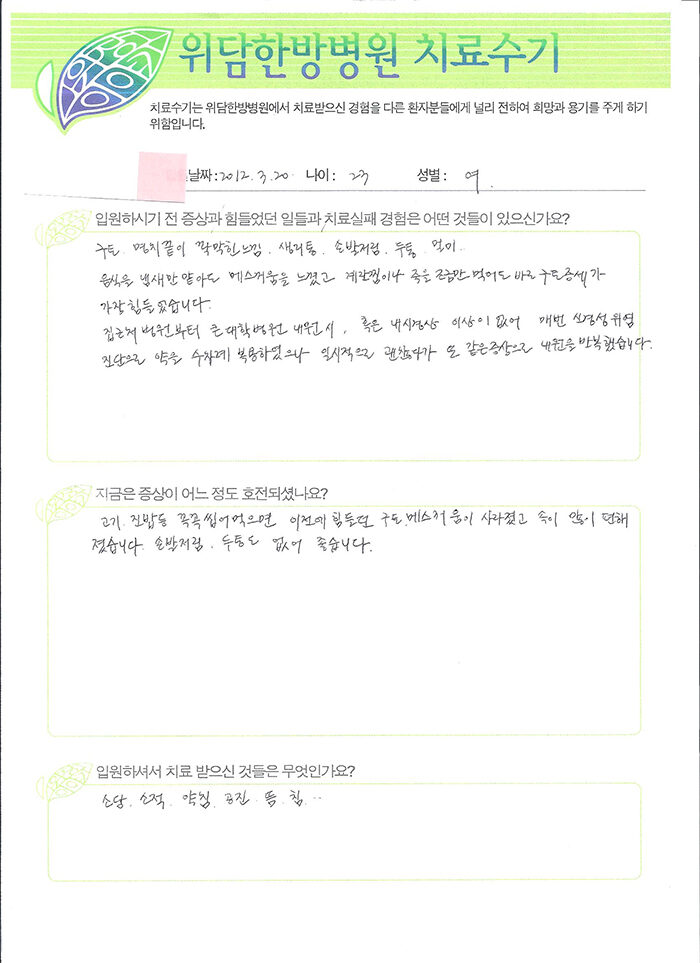 위담한방병원 치료수기
치료수기는 위담한방병원에서 치료받으신 경험을 다른 환자분들에게 널리 전하여 희망과 용기를 주게 하기
위함입니다.
날짜 : 2012. 3. 20 나이 : 23 성별 : 여.
입원하시기 전 증상과 힘들었던 일들과 치료실패 경험은 어떤 것들이 있으신가요?
구토. 명치끝이 꽉막힌느낌. 생리통. 손발저림. 두통.
음식을 냄새만 맡아도 메스꺼움을 느꼈고 계란찜이나 죽을 조금만 먹어도 바로 구토증세가
가장 힘들었습니다.
집근처 병원부터 큰 대학병원 내원시, 혹은 내시경상 이상이 없어 매번 신경성위염
진단으로 약을 수차례 복용하였으나 일시적으로 괜찮다가 또 같은증상으로 내원을 반복했습니다.
지금은 증상이 어느 정도 호전되셨나요?
고기. 진밥등 꼭꼭 씹어먹으면 이전에 힘들던 구토. 메스꺼움이 사라졌고 속이 많이 편해
졌습니다. 손발저림. 두통도 없어 좋습니다.
입원하셔서 치료 받으신 것들은 무엇인가요?
소담. 소적. 약침. 공진. 뜸. 침...